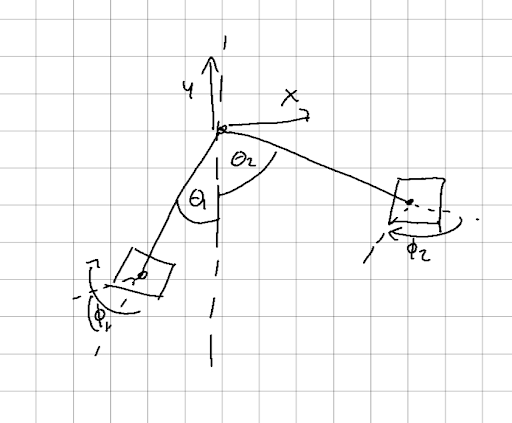 y
x
θ2
θ1
ϕ2
ϕ1